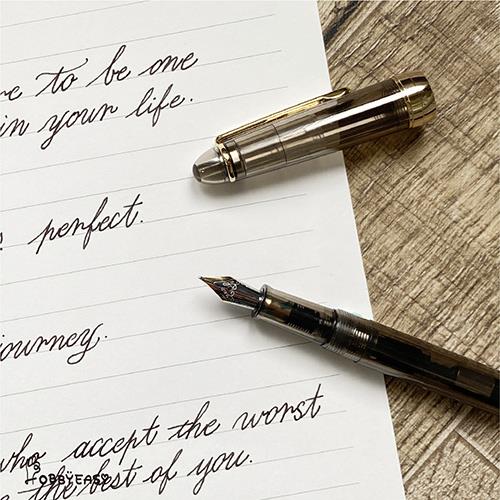 to be one
in your life.
perfect.
accept the worst
the best of you.
HOBBYEASY